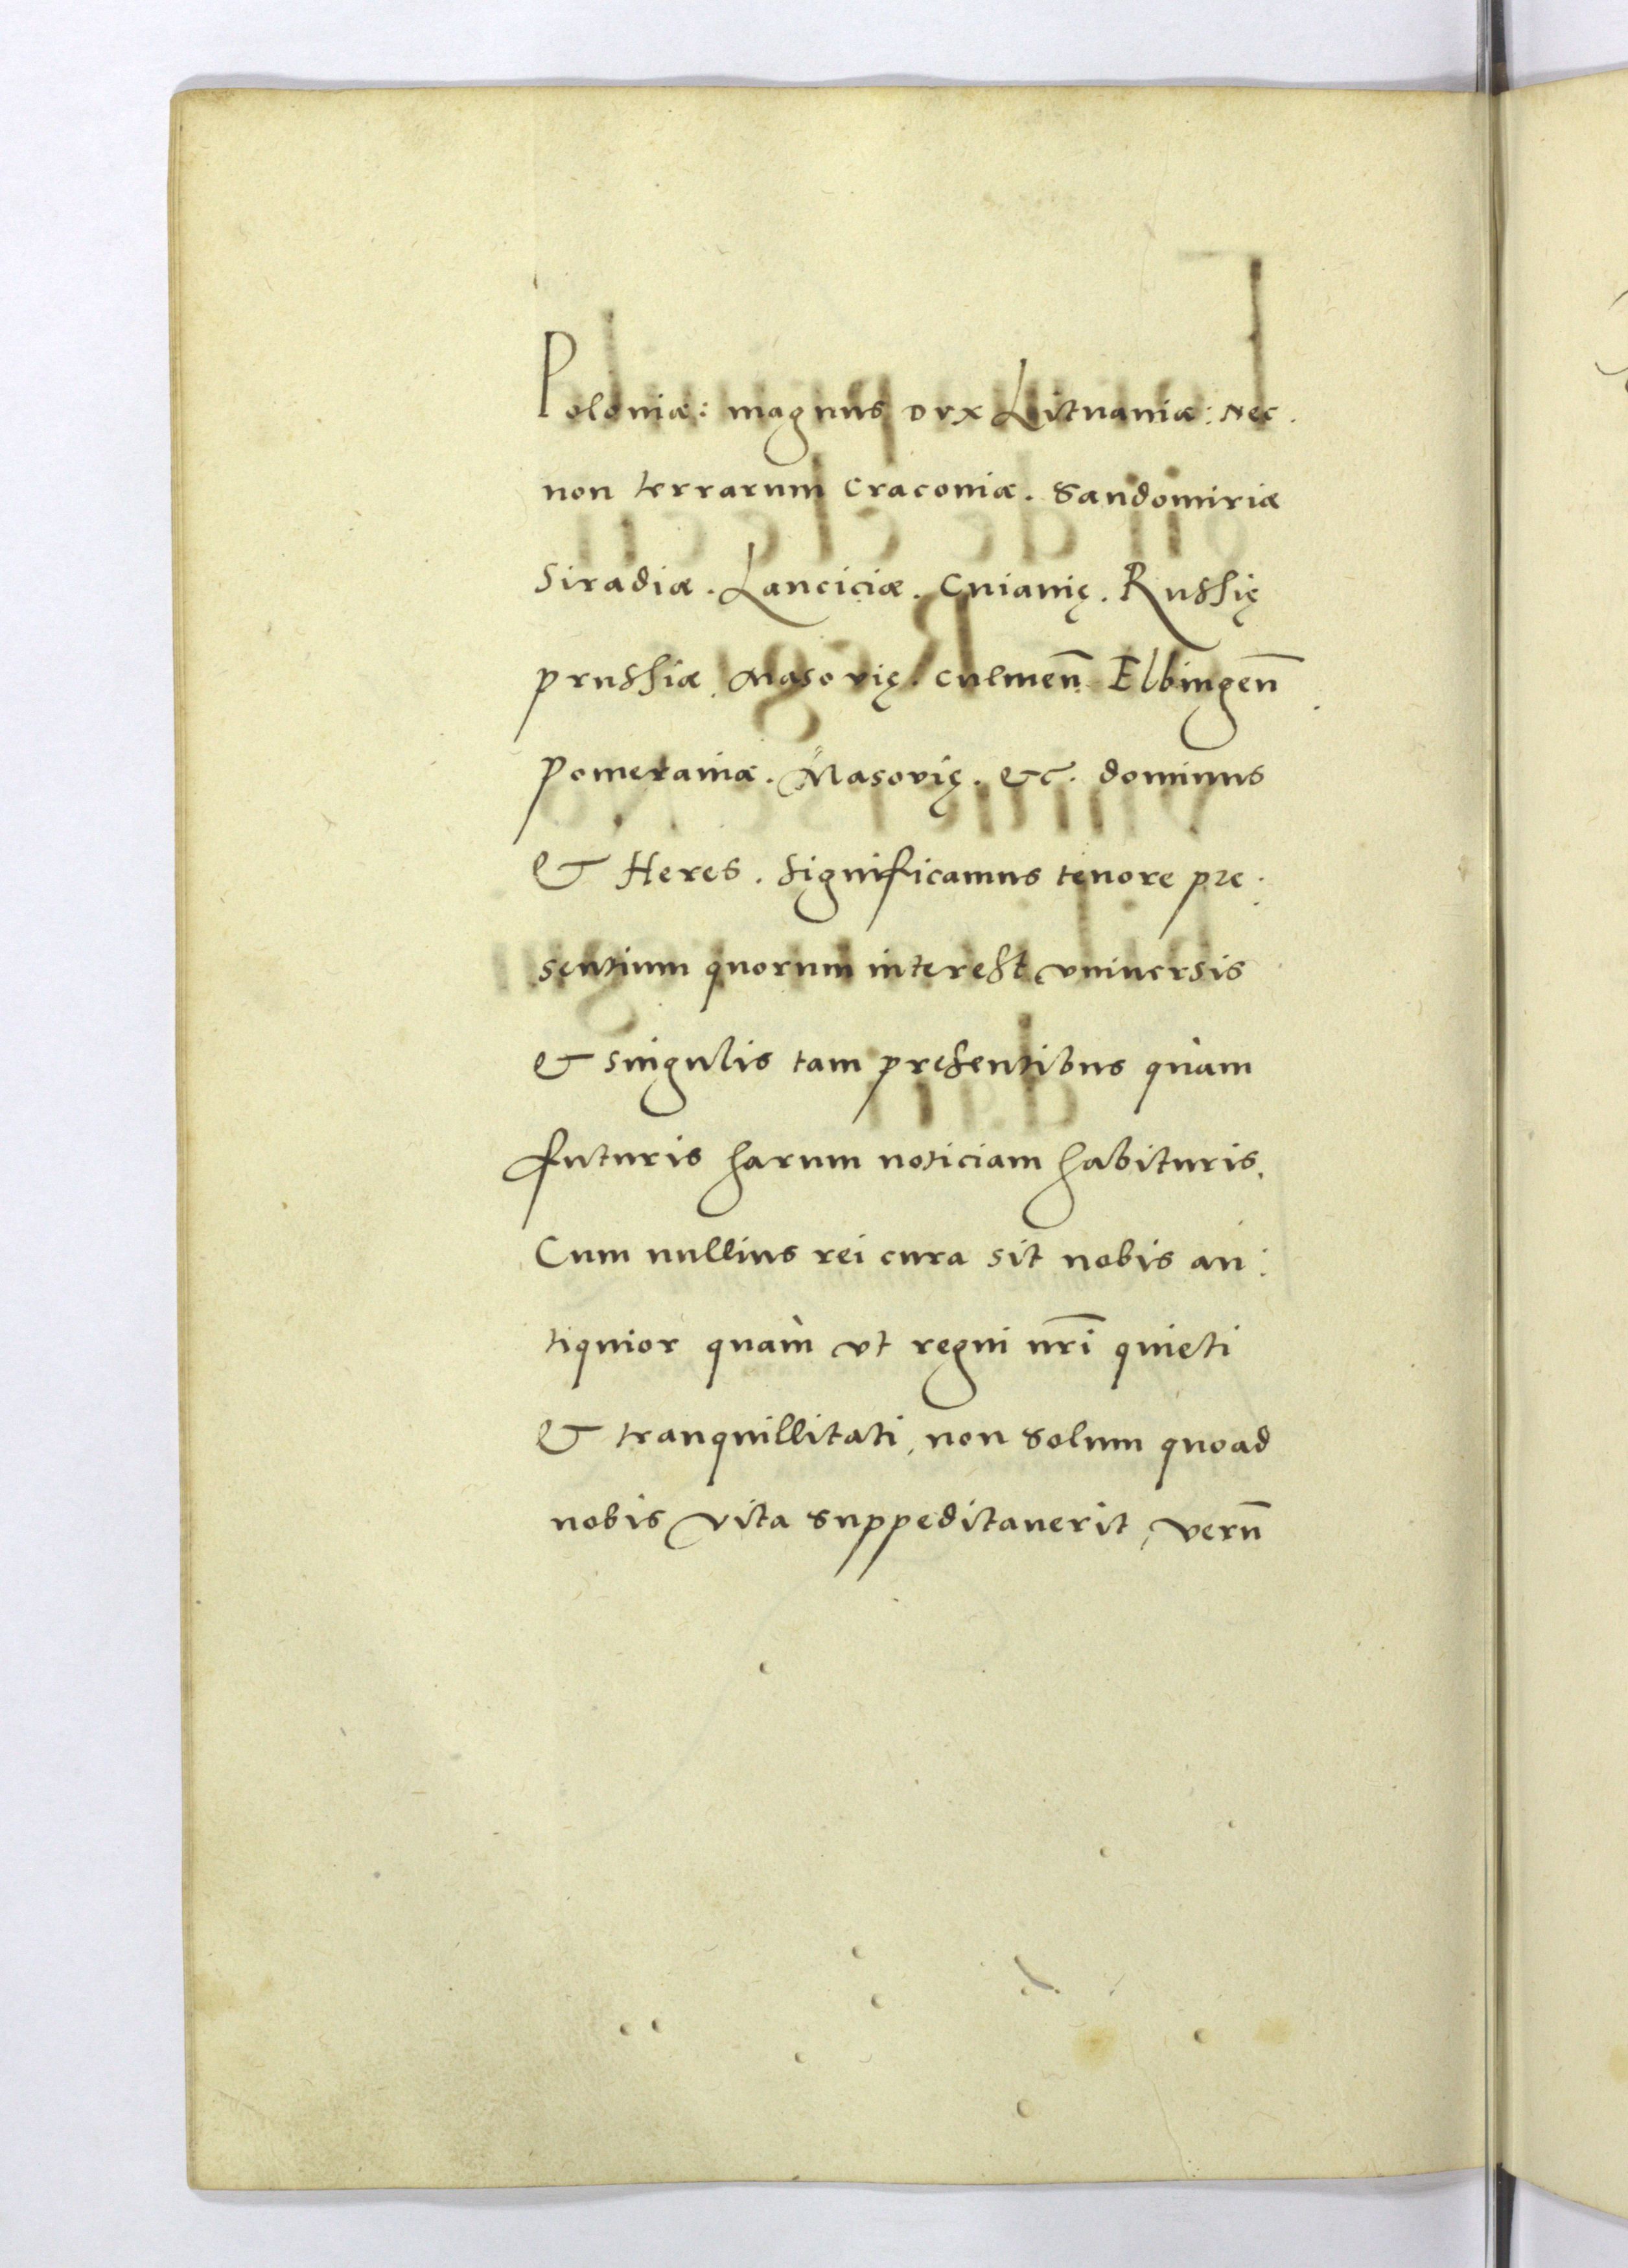 Poloniæ: magnus DVX Lituaniæ: Nec.
non terrarum Cracoviæ. Sandomiriæ
Siradiæ. Lanciciæ. Cuiavię. Russię
prussiæ. Masovię. Culmen̄ Elbingen̄.
Pomeraniæ. Masovię. &c. dominus
& Heres. Significamus tenore pre:
sentium quorum interest vniuersis
& singulis tam presentibus quàm
futuris harum noticiam habituris.
Cum nullius rei cura sit nobis an:
tiquior quàm vt regni nr̄i quieti
& tranquillitati, non solum quoad
nobis vita suppeditauerit, verū